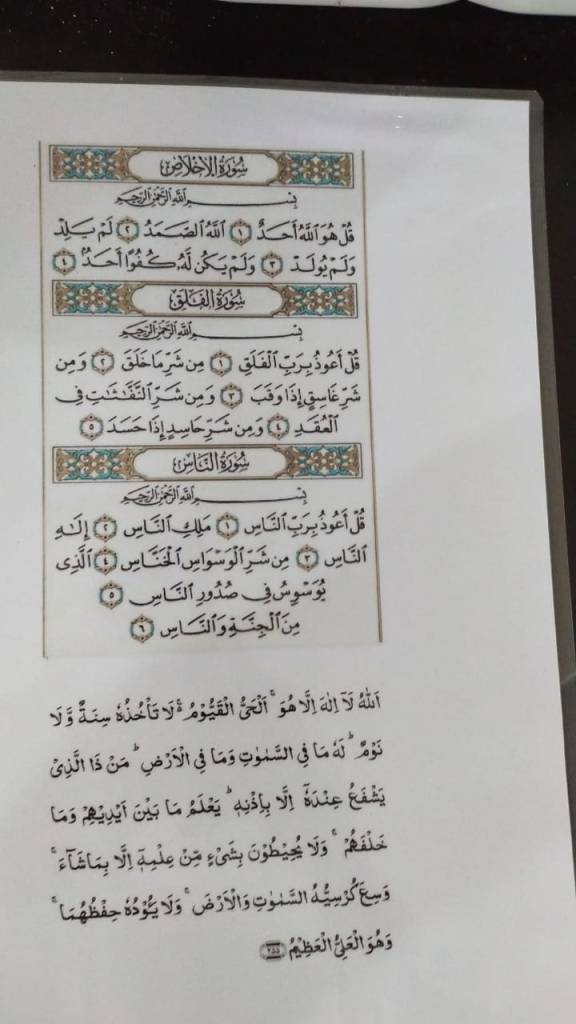 سُورَةُ الإِخْلَاصِ
بِسْمِ اللَّهِ الرَّحْمَٰنِ الرَّحِيمِ
قُلْ هُوَ اللَّهُ أَحَدٌ ١ اللَّهُ الصَّمَدُ ٢ لَمْ يَلِدْ
وَلَمْ يُولَدْ ٣ وَلَمْ يَكُن لَّهُۥ كُفُوًا أَحَدٌۢ ٤
سُورَةُ الفَلَقِ
بِسْمِ اللَّهِ الرَّحْمَٰنِ الرَّحِيمِ
قُلْ أَعُوذُ بِرَبِّ الْفَلَقِ ١ مِن شَرِّ مَا خَلَقَ ٢ وَمِن
شَرِّ غَاسِقٍ إِذَا وَقَبَ ٣ وَمِن شَرِّ النَّفَّٰثَٰتِ فِى
الْعُقَدِ ٤ وَمِن شَرِّ حَاسِدٍ إِذَا حَسَدَ ٥
سُورَةُ النَّاسِ
بِسْمِ اللَّهِ الرَّحْمَٰنِ الرَّحِيمِ
قُلْ أَعُوذُ بِرَبِّ النَّاسِ ١ مَلِكِ النَّاسِ ٢ إِلَٰهِ
النَّاسِ ٣ مِن شَرِّ الْوَسْوَاسِ الْخَنَّاسِ ٤ الَّذِى
يُوَسْوِسُ فِى صُدُورِ النَّاسِ ٥
مِنَ الْجِنَّةِ وَالنَّاسِ ٦
اَللّٰهُ لَآ اِلٰهَ اِلَّا هُوَ ۚ اَلْحَىُّ الْقَيُّوْمُ ۚ لَا تَاْخُذُهٗ سِنَةٌ وَّلَا
نَوْمٌ ؕ لَهٗ مَا فِى السَّمٰوٰتِ وَمَا فِى الْاَرْضِ ؕ مَنْ ذَا الَّذِىْ
يَشْفَعُ عِنْدَهٗٓ اِلَّا بِاِذْنِهٖ ؕ يَعْلَمُ مَا بَيْنَ اَيْدِيْهِمْ وَمَا
خَلْفَهُمْ ۚ وَلَا يُحِيْطُوْنَ بِشَىْءٍ مِّنْ عِلْمِهٖٓ اِلَّا بِمَا شَآءَ ۚ
وَسِعَ كُرْسِيُّهُ السَّمٰوٰتِ وَالْاَرْضَ ۚ وَلَا يَـُٔوْدُهٗ حِفْظُهُمَا ۚ
وَهُوَ الْعَلِىُّ الْعَظِيْمُ ٢٥٥